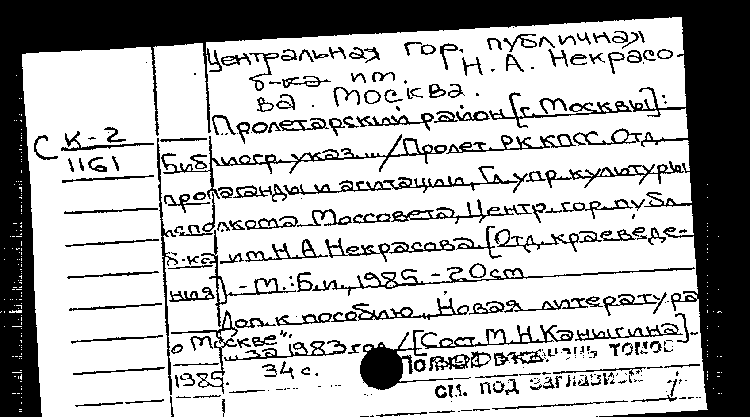 Центральная гор. публичная
б-ка им. Н.А. Некрасо-
ва. Москва.
Пролетарский район [г. Москвы]:
С К-2
1161
Библиогр. указ... / Пролет. РК КПСС. Отд.
пропаганды и агитации, Гл. упр. культуры
исполкома Моссовета, Центр. гор. публ.
б-ка им. Н.А. Некрасова [Отд. краеведе-
ния]. - М.: Б.и., 1985. - 20 см
Доп. к пособию „Новая литература
о Москве".
„ за 1983 год / [Сост. М.Н. Каныгина].
1985. 34 с.
томов
см. под заглавием